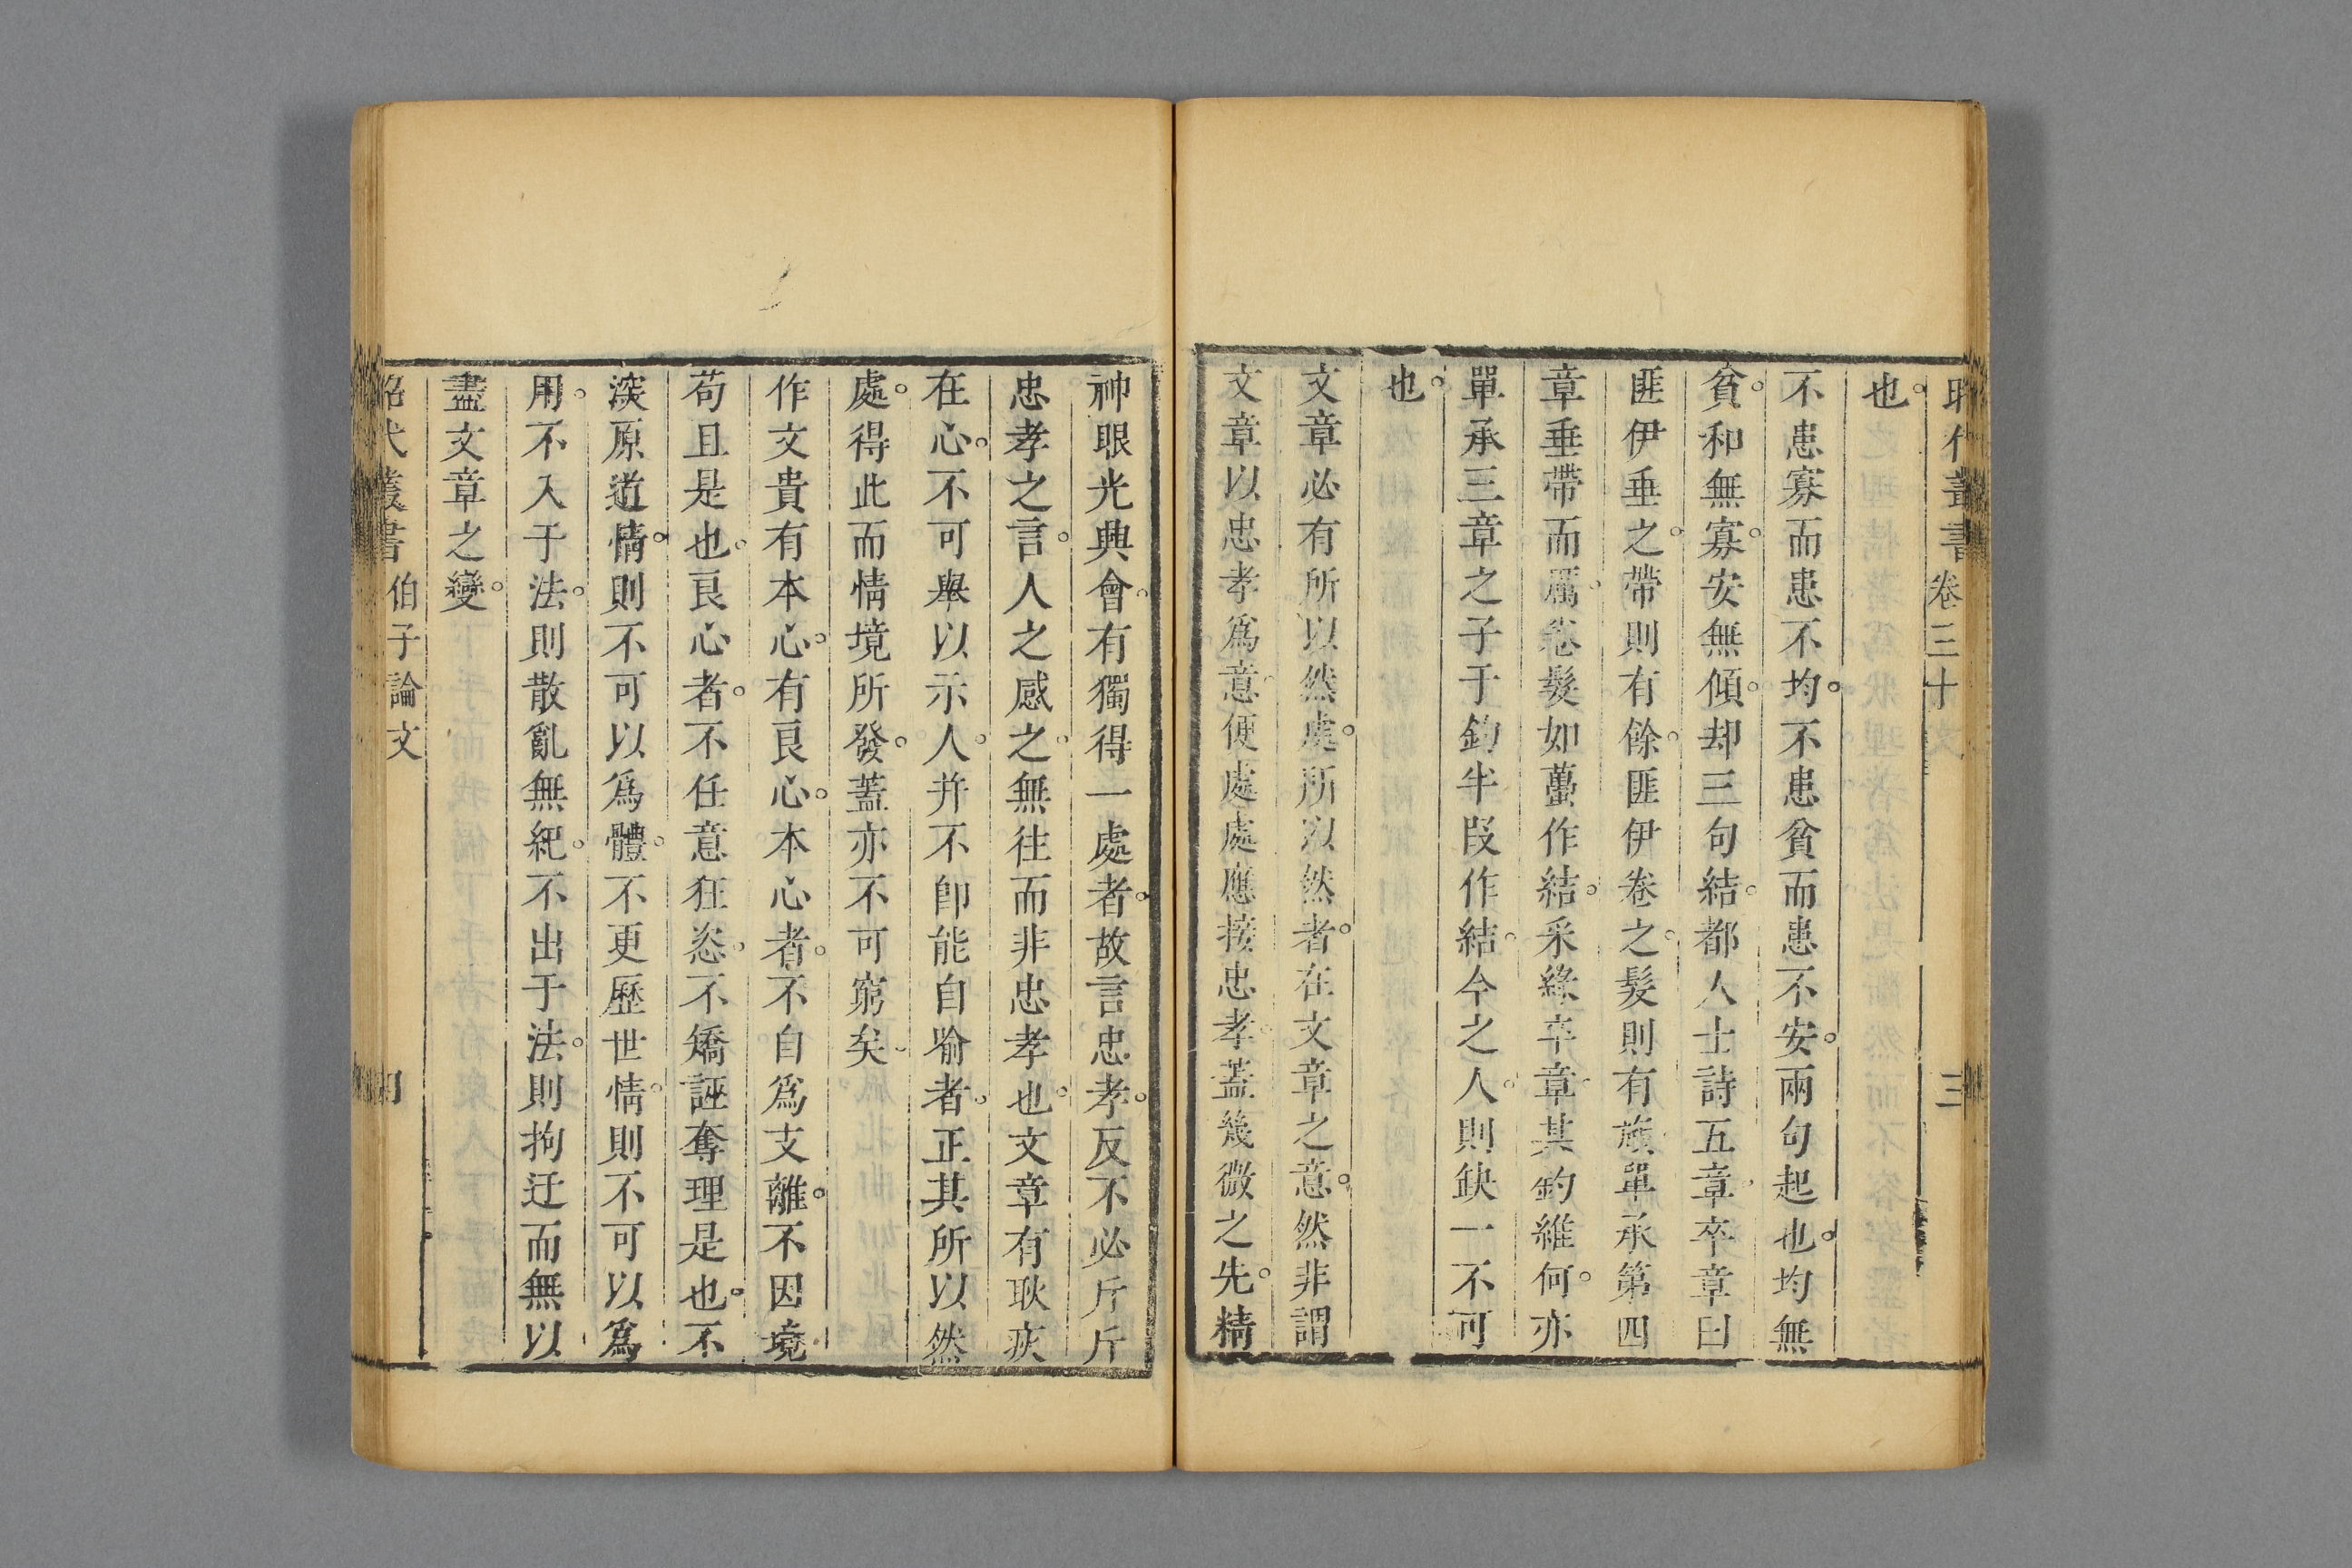 昭代叢書 卷三十 三
也。
不患寡而患不均。不患貧而患不安。兩句起也。均無
貧。和無寡。安無傾。却三句結。都人士詩五章。卒章曰
匪伊垂之。帶則有餘。匪伊卷之。髮則有旟。單承第四
章垂帶而厲。卷髮如蠆作結。采綠卒章。其釣維何。亦
單承三章之子于釣半段作結。今之人。則缺一不可
也。
文章必有所以然處。所以然者。在文章之意。然非謂
文章以忠孝爲意。便處處應接忠孝。蓋幾微之先。精
神眼光興會。有獨得一處者。故言忠孝。反不必斤斤
忠孝之言。人之感之。無往而非忠孝也。文章有耿疚
在心。不可舉以示人。并不卽能自喻者。正其所以然
處。得此而情境所發。蓋亦不可窮矣。
作文貴有本心。有良心。本心者。不自爲支離。不因境
苟且是也。良心者。不任意狂恣。不矯誣奪理是也。不
深原道情。則不可以爲體。不更歷世情。則不可以爲
用。不入于法。則散亂無紀。不出于法。則拘迂而無以
盡文章之變。
昭代叢書 伯子論文 四